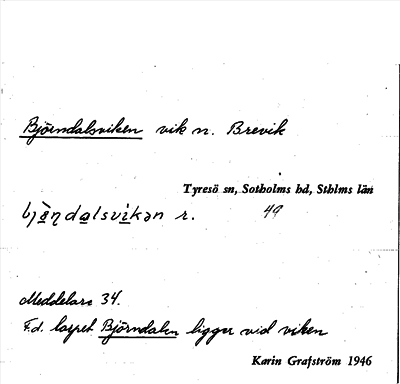 Björndalsviken vik n. Brevik
Tyresö sn, Sotholms hd, Sthlms län
bjö̀ṇdalsvi̇̀kən r. 49
Meddelare 34.
F.d. torpet Björndalen ligger vid viken
Karin Grafström 1946